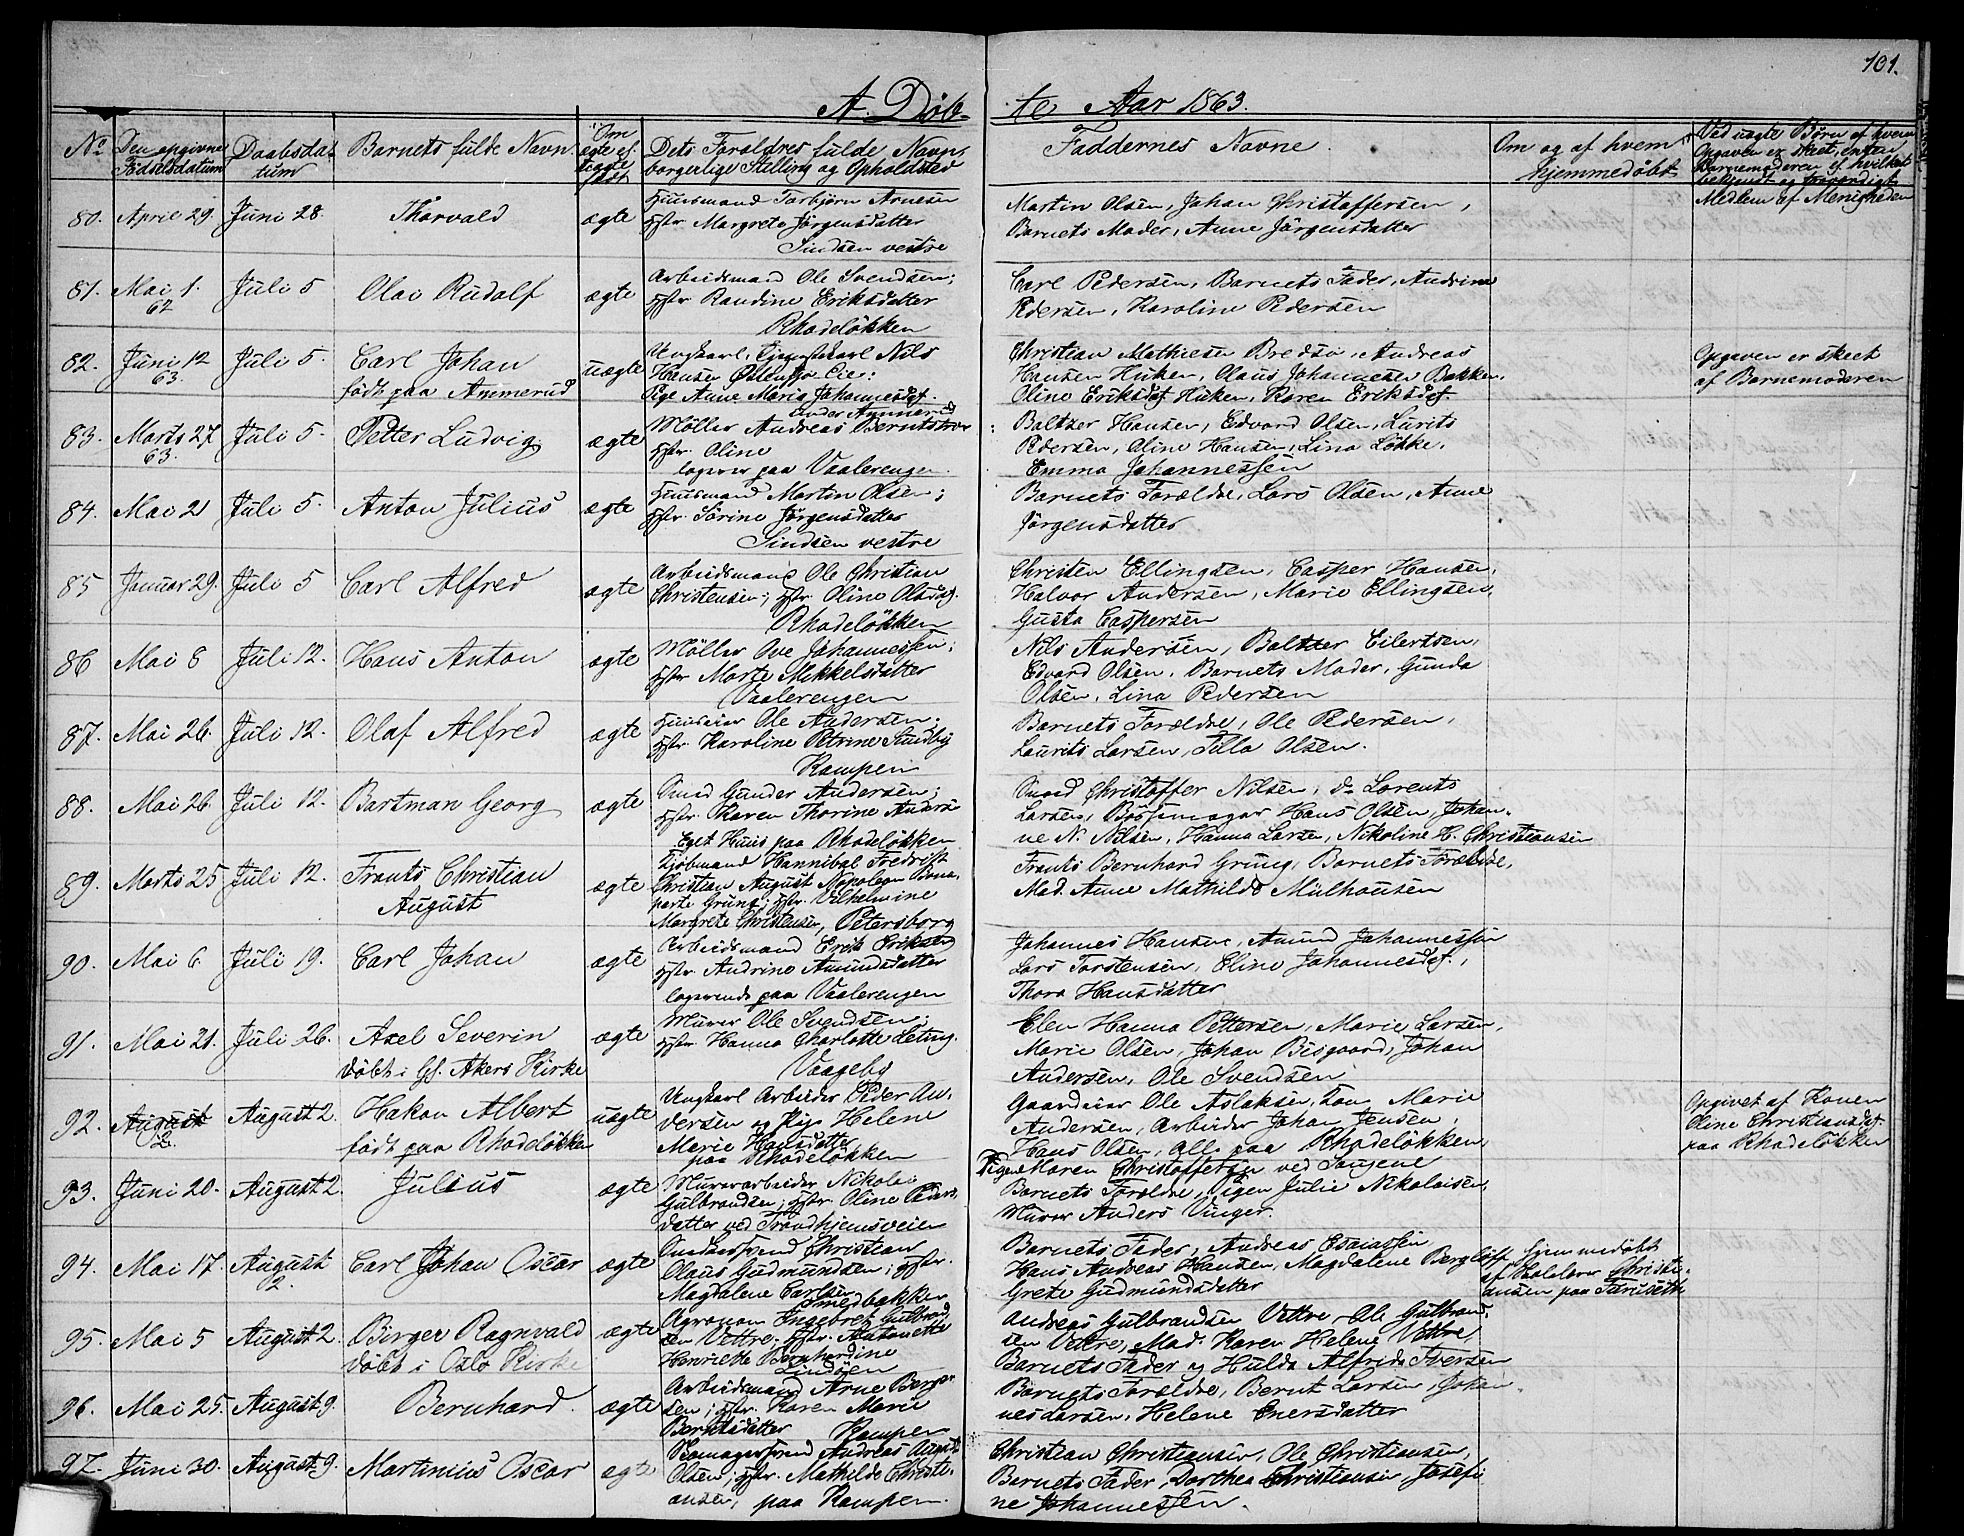 101.
A. Døb-
te Aar 1863.
No
Den opgivne
Fødselsdatum
Daabsda-
tum
Barnets fulde Navn
Om
ægte el.
uægte
født
Dets Forældres fulde Navn,
borgerlige Stilling og Opholdsted
Faddernes Navne.
Om og af hvem
hjemmedøbt
Ved uægte Børn af hvem
Opgaven er skeet, enten
Barnemoderen el. hvilket
bekjendt og troværdigt
Medlem af Menigheden
80. April 29. Juni 28. Thorvald ægte
Huusmand Torbjørn Arnesen
Hstr Margrete Jørgensdatter
Sindsen vestre
Martin Olsen, Johan Christoffersen,
Barnets Moder, Anne Jørgensdatter
81. Mai 1. 62 Juli 5 Olai Rudolf ægte
Arbeidsmand Ole Svendsen;
Hstr Randine Eriksdatter
Rhodeløkken
Carl Pedersen, Barnets Fader, Andrine
Pedersen, Karoline Pedersen
82. Juni 12 63. Juli 5. Carl Johan uægte
født paa Ammerud
Ungkarl, Tjenestekarl Nils
Hansen Østensjø Eie:
Pige Anne Maria Johannesdf.
under Ammerud
Christian Mathiesen Bredsø, Andreas
Hansen Huken, Olaus Johannesen Bakken,
Oline Eriksdf Huken, Karen Eriksdf
Opgaven er skeet
af Barnemoderen
83. Marts 27 63. Juli 5. Petter Ludvig ægte
Møller Andreas Berntsen
Hstr. Oline
logerer paa Vaalerengen.
Baltzer Hansen, Edvard Olsen, Lurits
Pedersen, Oline Hansen, Lina Løkke,
Emma Johannessen
84. Mai 21 Juli 5. Anton Julius ægte
Huusmand Martin Olsen;
Hstr. Sørine Jørgensdatter
Sindsen vestre
Barnets Forældre, Lars Olsen, Anne
Jørgensdatter
85 Januar 29. Juli 5 Carl Alfred ægte
Arbeidsmand Ole Christian
Christensen; Hstr. Oline Olsdf.
Rhodeløkken
Christen Ellingsen, Casper Hansen,
Halvor Andersen, Marie Ellingsen,
Gusta Caspersen
86 Mai 8 Juli 12. Hans Anton ægte
Møller Ove Johannessen;
Hstr Marte Mikkelsdatter
Vaalerengen
Nils Andersen, Baltzer Eilertsen,
Edvard Olsen, Barnets Moder, Gunda
Olsen, Lina Pedersen
87. Mai 26. Juli 12. Olaf Alfred ægte
Huuseier Ole Andersen;
Hstr. Karoline Petrine Sundby
Kampen
Barnets Forældre, Ole Pedersen,
Laurits Larsen, Tilla Olsen.
88. Mai 26 Juli 12. Bartman Georg ægte
Smed Gunder Andersen;
Hstr. Karen Thorine Anders
Eget Huus paa Rhodeløkken
Smed Christoffer Nilsen, do Lorents
Larsen, Bøssemager Hans Olsen, Johan-
ne N. Nilsen, Hanna Larsen, Nikoline H. Christiansen
89. Marts 25 Juli 12. Frants Christian ægte
August
Kjøbmand Hannibal Fredrik
Christian August Napoleon Bona-
parte Grung; Hstr. Vilhelmine
Margrete Christensen, Petersborg
Frants Bernhard Grung, Barnets Forældre,
Mad. Anne Mathilde Mülhausen
90. Mai 6. Juli 19. Carl Johan ægte
Arbeidsmand Erik Eriksen
Hstr. Andrine Amundsdatter
logerende paa Vaalerengen
Johannes Hansen, Amund Johannessen
Lars Torstensen, Eline Johannesdf.,
Thora Hansdatter
91. Mai 21. Juli 26. Axel Severin ægte
døbt i Gl. Akers Kirke
Murer Ole Svendsen;
Hstr Hanna Charlotte Leting.
Vaageby
Elen Hanna Pettersen, Marie Larsen,
Marie Olsen, Johan Bisgaard, Johan
Andersen, Ole Svendsen
92. August August 2. Hakon Albert uægte
født paa Rhodeløkken
Ungkarl Arbeider Peder An-
dersen og Pige Helene
Marie Hansdatter
paa Rhodeløkken
Gaardeier Ole Aslaksen, Marie
Andersen, Arbeider Johan Jensen,
Hans Olsen, alle paa Rhodeløkken,
Opgivet af Konen
Oline Christiansdf.
paa Rhodeløkken
93. Juni 20. August 2. Julius ægte
Murerarbeider Nikolai
Gulbrandsen; Hstr. Oline Peders
datter ved Trondhjemsveien
Pigen Maren Christoffersen ved Saugene
Barnets Forældre, Pigen Julie Nikolaisen,
Murer Anders Vinger.
94. Mai 17. August 2. Carl Johan Oscar ægte
Snedkersvend Christian
Olaus Gudmundsen; Hstr.
Magdalene Carlsen
Smedbakken
Barnets Fader, Andreas Esaiassen
Hans Andreas Hansen, Magdalene Bergløff,
Grete Gudmundsdatter
hjemmedøbt
af Skolelærer Christi-
ansen paa
95. Mai 5 August 2. Birger Ragnvald ægte
døbt i Oslo Kirke
Agronom Ingebret Gulbrand
sen Vettre. Hstr. Antonette
Henriette Bernhardine
Lindøen
Andreas Gulbrandsen Vettre, Ole Gulbrand-
sen Vettre, Mad. Karen Helene Vettre,
Barnets Fader og Hulda Alfrida Iversen
96. Mai 25. August 9. Bernhard. ægte
Arbeidsmand Arne Berge-
sen; Hstr. Karen Marie
Berntsdatter Kampen
Barnets Forældre, Bernt Larsen, Johan-
nes Larsen, Helene Enersdatter
97. Juni 30. August 9. Martinius Oscar ægte
Skomagersvend Andreas August
Olsen; Hstr. Mathilde Christi-
ansen, paa Kampen.
Christian Christiansen, Ole Christiansen,
Barnets Fader, Dorthea Christiansen, Josefi
ne Johannessen.